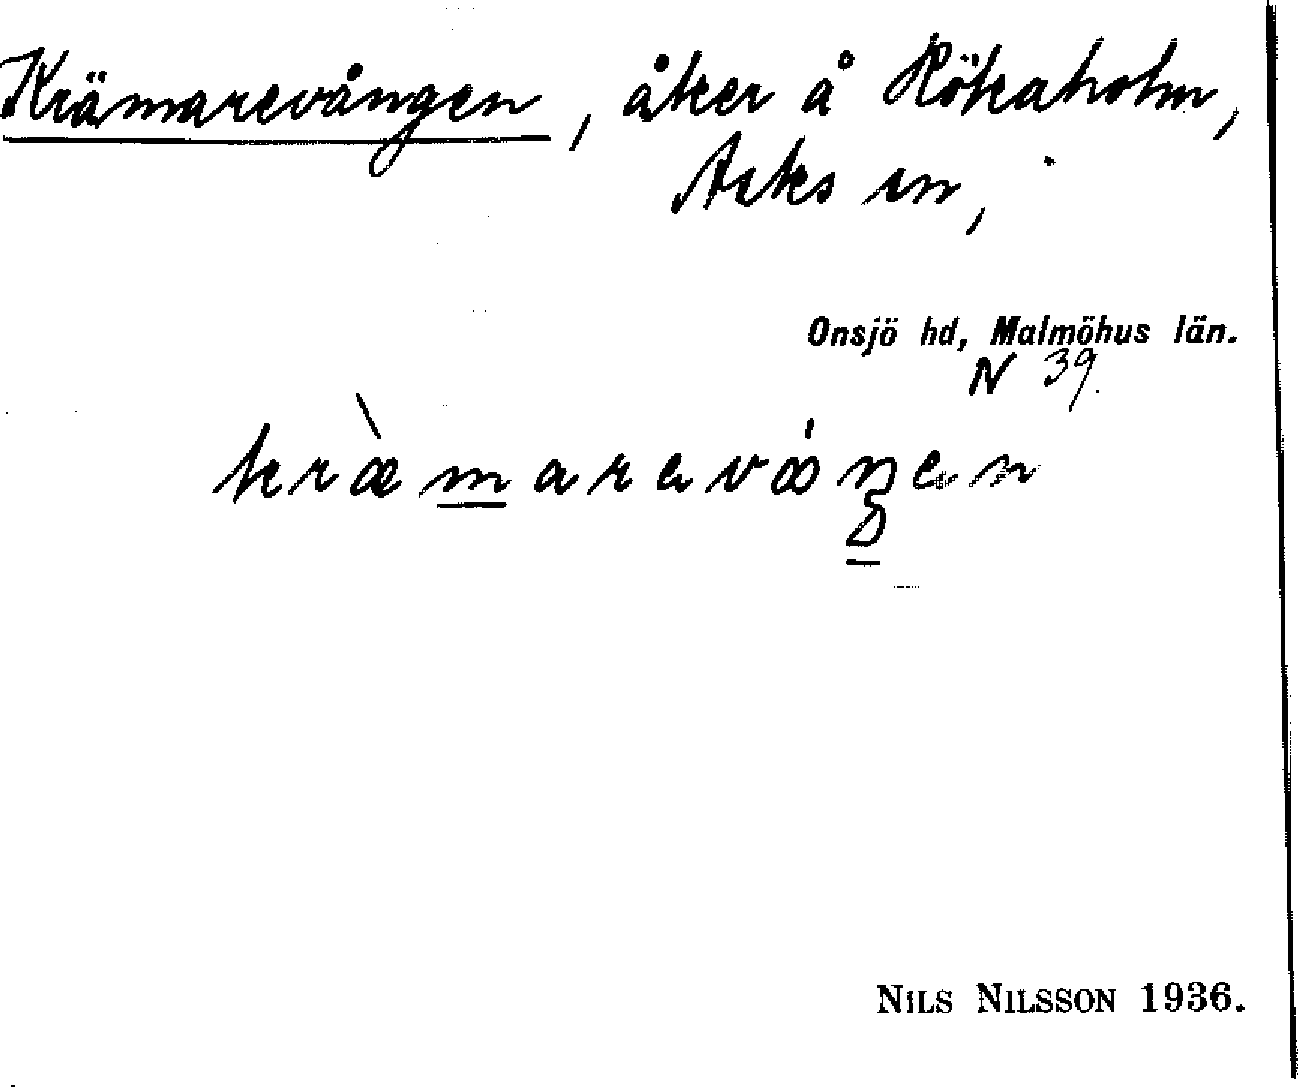 Krämarevången, åker å Rökaholm,
Asks sn,
Onsjö hd, Malmöhus län.
N 39.
kræ̀mareváŋen
NILS NILSSON 1936.